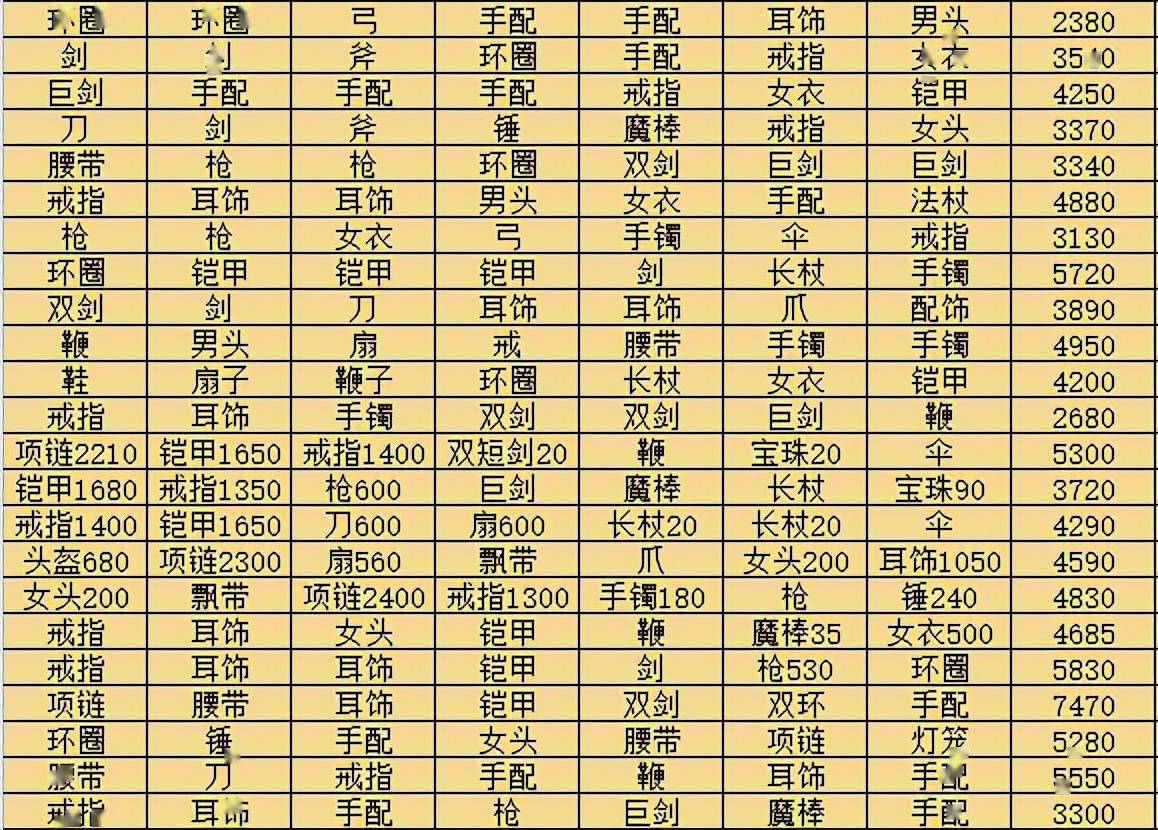 环圈 环圈 弓 手配 手配 耳饰 男头 2380
剑 斧 环圈 手配 戒指 女衣
巨剑 手配 手配 手配 戒指 女衣 铠甲 4250
刀 剑 斧 锤 魔棒 戒指 女头 3370
腰带 枪 枪 环圈 双剑 巨剑 巨剑 3340
戒指 耳饰 耳饰 男头 女衣 手配 法杖 4880
枪 枪 女衣 弓 手镯 伞 戒指 3130
环圈 铠甲 铠甲 铠甲 剑 长杖 手镯 5720
双剑 剑 刀 耳饰 耳饰 爪 配饰 3890
鞭 男头 扇 戒 腰带 手镯 手镯 4950
鞋 扇子 鞭子 环圈 长杖 女衣 铠甲 4200
戒指 耳饰 手镯 双剑 双剑 巨剑 鞭 2680
项链2210 铠甲1650 戒指1400 双短剑20 鞭 宝珠20 伞 5300
铠甲1680 戒指1350 枪600 巨剑 魔棒 长杖 宝珠90 3720
戒指1400 铠甲1650 刀600 扇600 长杖20 长杖20 伞 4290
头盔680 项链2300 扇560 飘带 爪 女头200 耳饰1050 4590
女头200 飘带 项链2400 戒指1300 手镯180 枪 锤240 4830
戒指 耳饰 女头 铠甲 鞭 魔棒35 女衣500 4685
戒指 耳饰 耳饰 铠甲 剑 枪530 环圈 5830
项链 腰带 耳饰 铠甲 双剑 双环 手配 7470
环圈 锤 手配 女头 腰带 项链 灯笼 5280
腰带 刀 戒指 手配 鞭 耳饰 手配 5550
戒指 耳饰 手配 枪 巨剑 魔棒 手配 3300